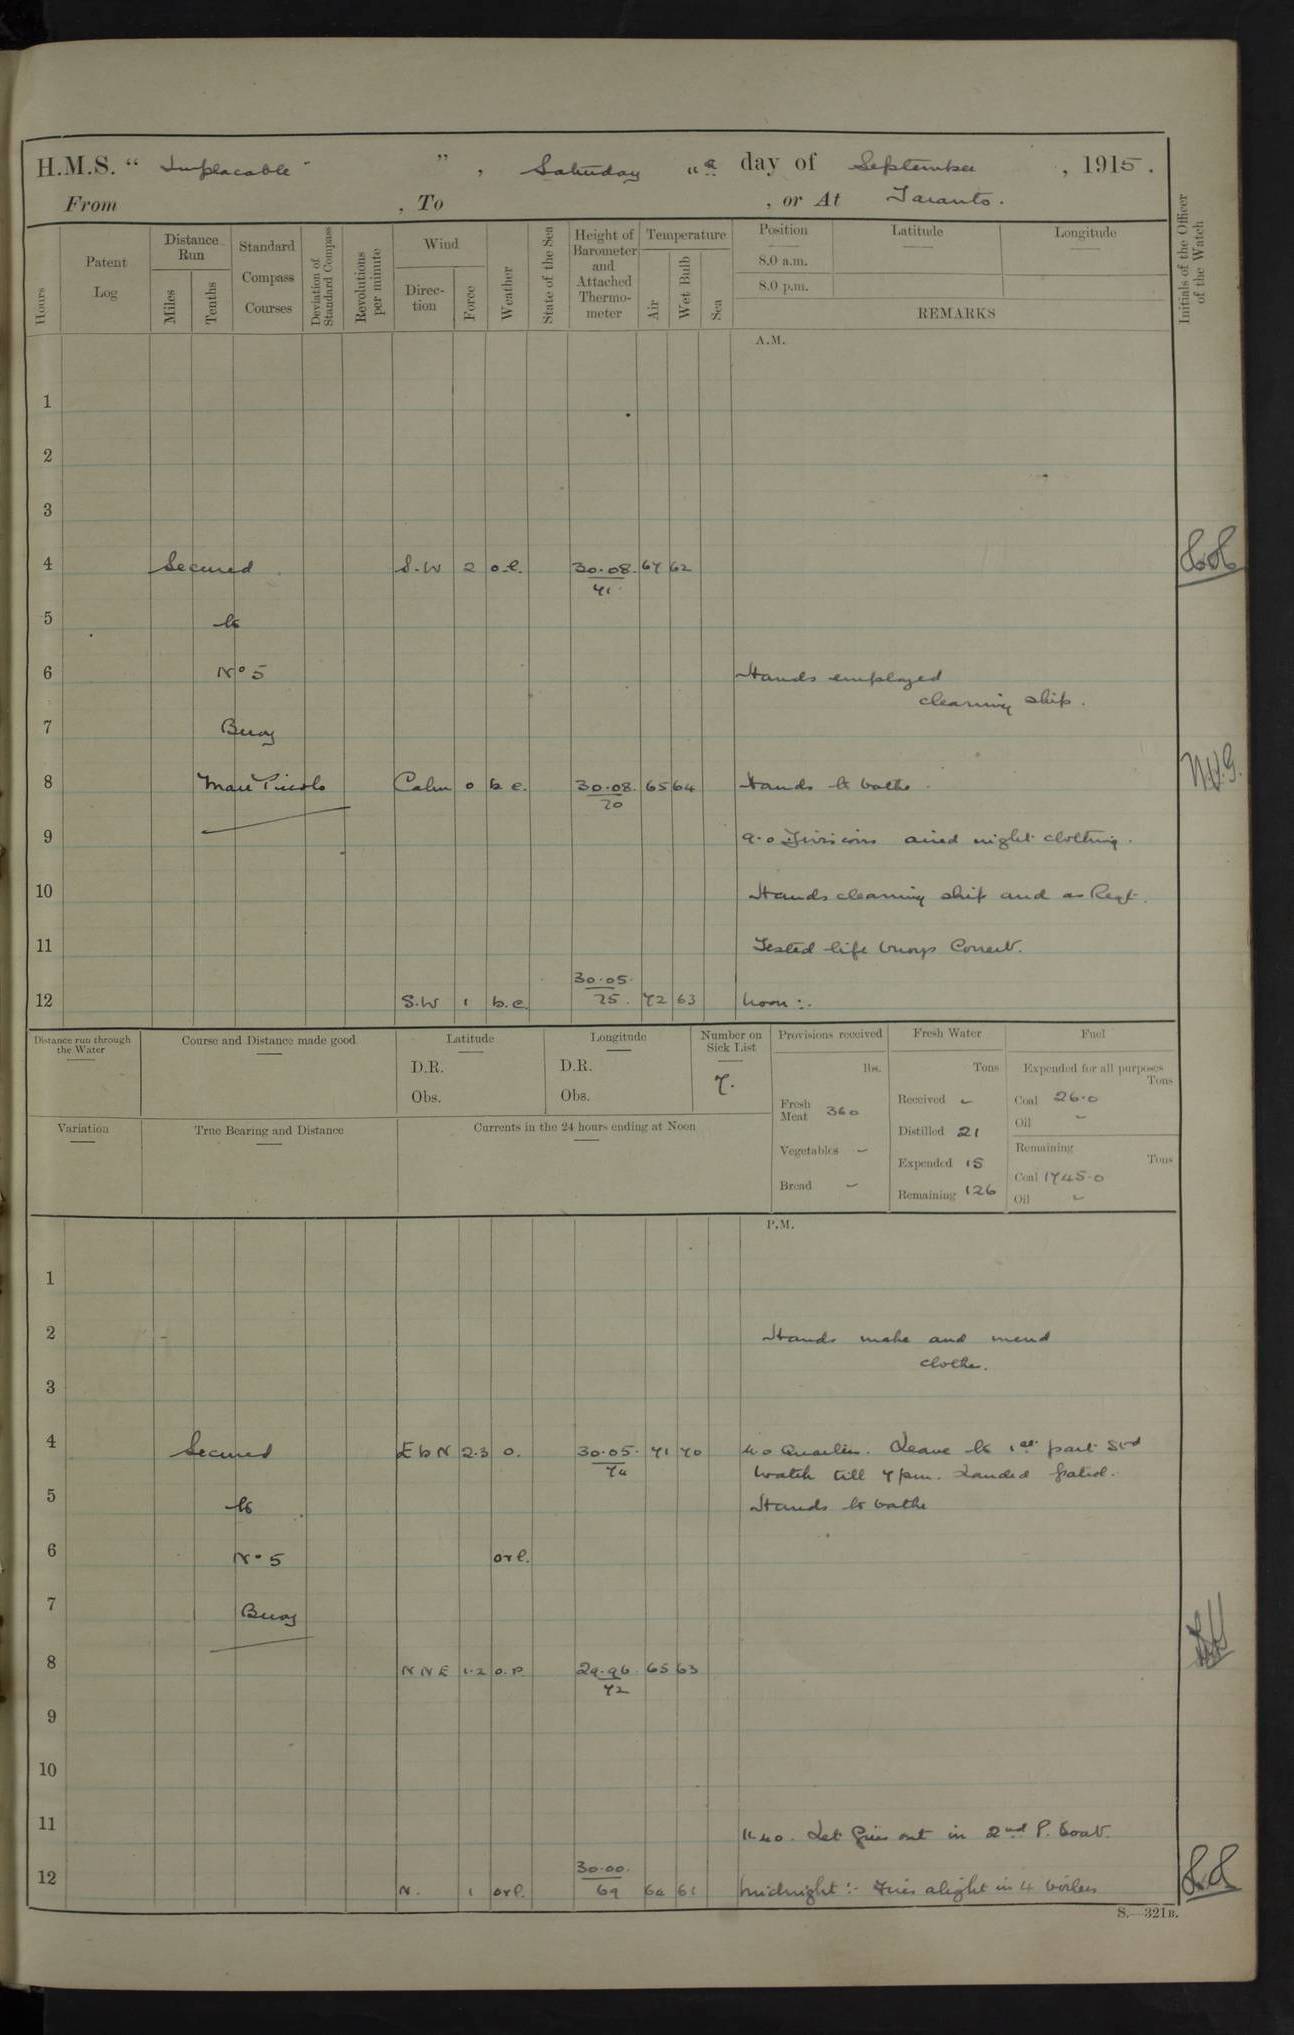 H.M.S. “ Implacable ” , Saturday day of September , 1915 .
From , To , or At Taranto.
Hours
Patent Log
Distance Run
Miles
Tenths
Standard Compass Courses
Deviation of Standard Compass
Revolutions per minute
Wind
Direc-tion
Force
Weather
State of the Sea
Height of Barometer and Attached Thermo-meter
Temperature
Air
Wet Bulb
Sea
Position
8.0 a.m.
8.0 p.m.
Latitude
Longitude
REMARKS
Initials of the Officer of the Watch
A.M.
1
2
3
4 Secured S.W 2 30.08. 67 62
71
5 to
6 No 5 Hands employed
cleaning ship.
7 Buoy
8 Mare Piccolo Calm 0 b.c. 30.08. 65 64 Hands to bathe.
70
9 9.0 Divisions aired night clothing.
10 Hands cleaning ship and as Reqt.
11 Tested life buoys Correct.
30.05.
12 S.W 1 b.c. 75. 72 63 Noon :.
Distance run through the Water
Course and Distance made good
Latitude
D.R.
Obs.
Longitude
D.R.
Obs.
Number on Sick List
7.
Provisions received
lbs.
Fresh Meat 360
Vegetables –
Bread –
Fresh Water
Tons
Received –
Distilled 21
Expended 15
Remaining 126
Fuel
Expended for all purposes
Tons
Coal 26.0
Oil –
Remaining
Tons
Coal 1745.0
Oil –
Variation
True Bearing and Distance
Currents in the 24 hours ending at Noon
P.M.
1
2 Hands make and mend
clothes.
3
4 Secured E b N 2.3 o. 30.05. 71 70 4.0 Quarters. Leave to 1st part Std
74 watch till 7pm. Landed patrol.
5 to Hands to bathe
6 No 5
7 Buoy
8 N N E 1.2 o.p. 29.96 65 63
72
9
10
11 11.40. Let fires out in 2nd P. boat.
30.00.
12 N. 1 69 64 61 Midnight :- Fires alight in 4 boilers
S.—321B.